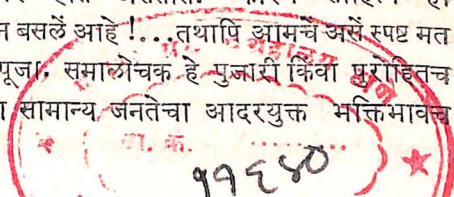 न बसलें आहे !...तथापि आमचें असें स्पष्ट मत
पूजा. समालोचक हे पुजारी किंवा पुरोहितच
सामान्य जनतेचा आदरयुक्त भक्तिभावच
वा. क.
११६४०